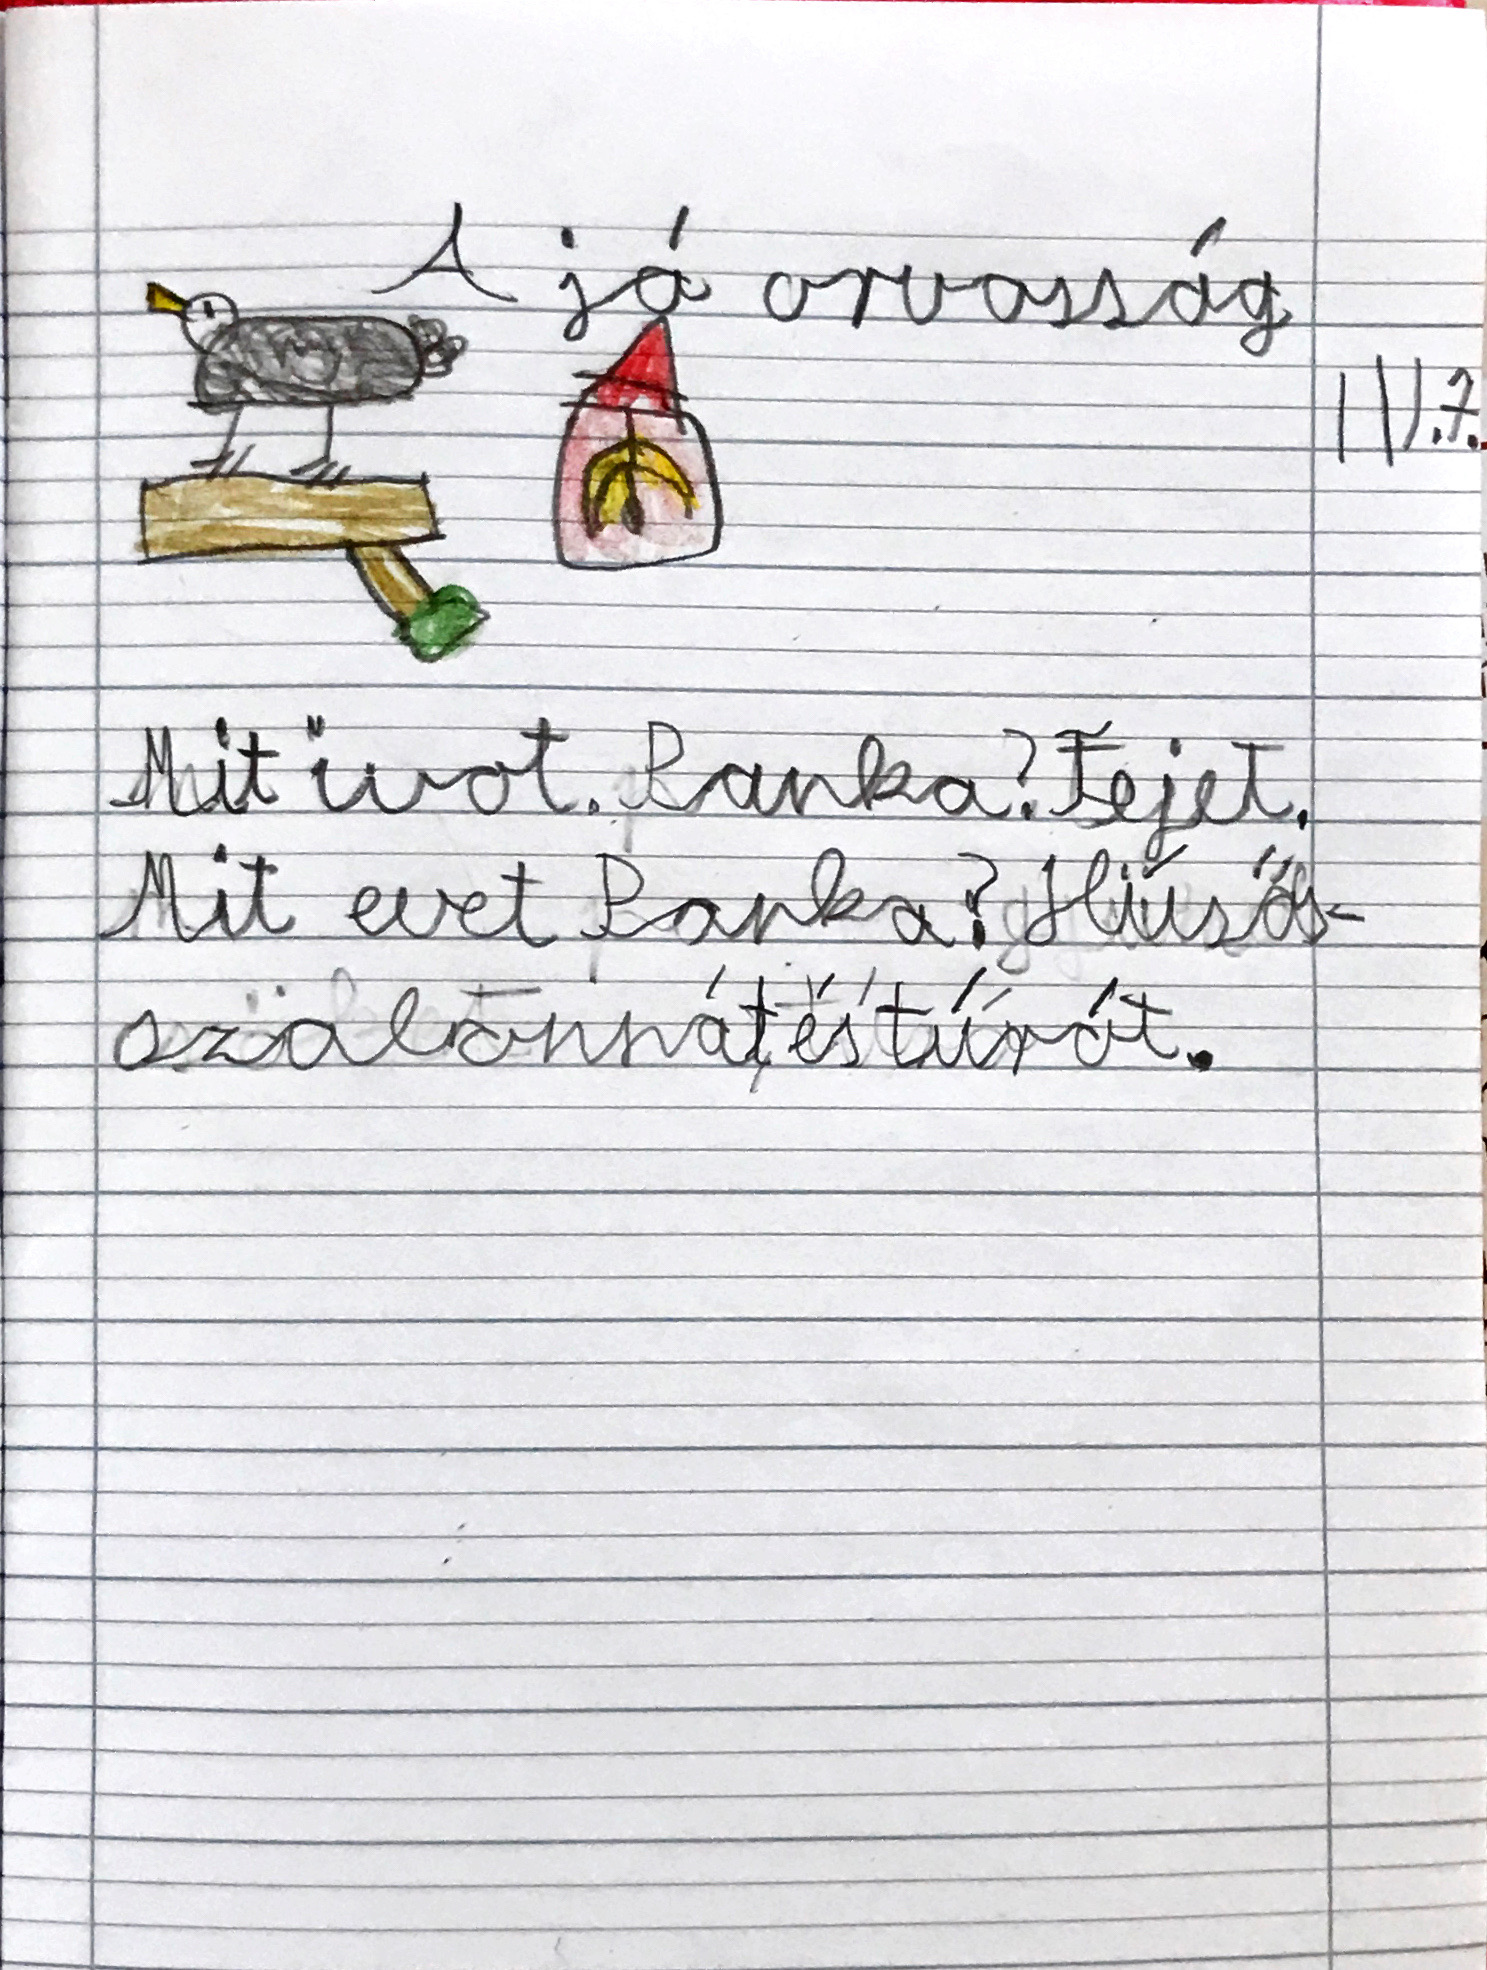 A já orvosság
IV.7.
Mit ivot. Ranka? Tejet.
Mit evet Ranka? Húsos-
szalonnát és túrót.